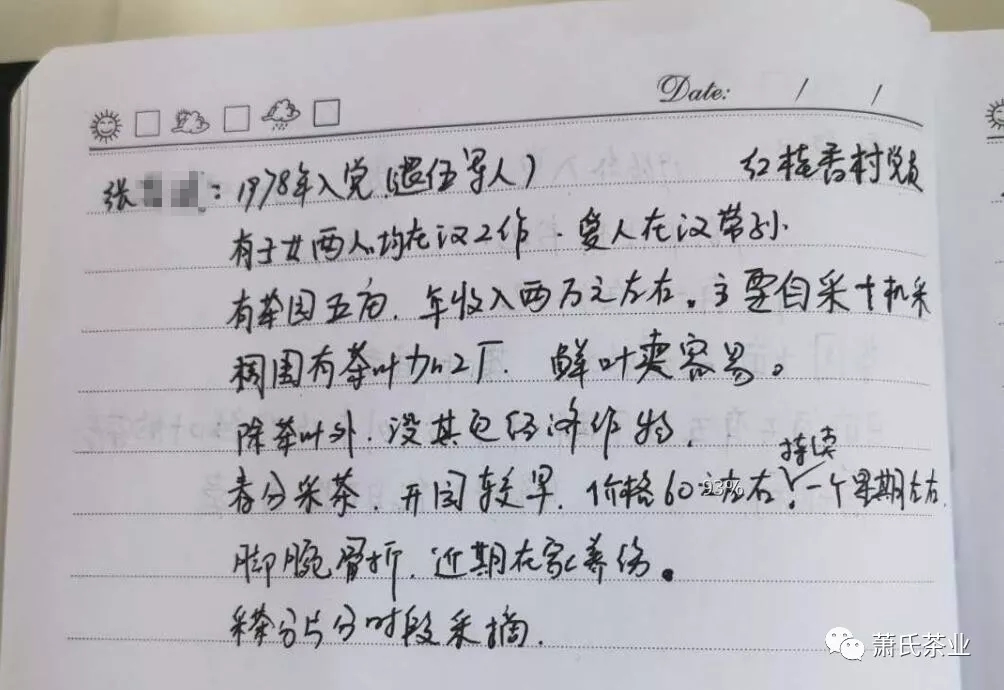 Date: / /
张 : 1978年入党(退伍军人) 红桂香村党员
有子女两人均在汉工作. 爱人在汉带孙.
有茶园五亩. 年收入两万元左右。主要自采十机采
稠围有茶叶加工厂. 鲜叶卖容易。
除茶叶外. 没其它经济作物.
持续
春分采茶. 开园较早. 价格60元左右. 一个星期左右.
93%
脚腕骨折. 近期在家养伤。
采茶分片分时段采摘.
萧氏茶业